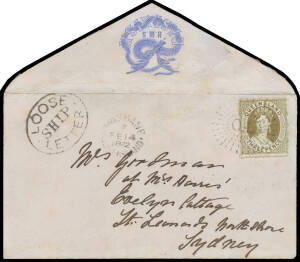 SWR
LOOSE
SHIP
LETTER
FE 14
QUEENSLAND
Mrs Goodman
at Mrs Davies'
Evelyn Cottage
St. Leonards North Shore
Sydney